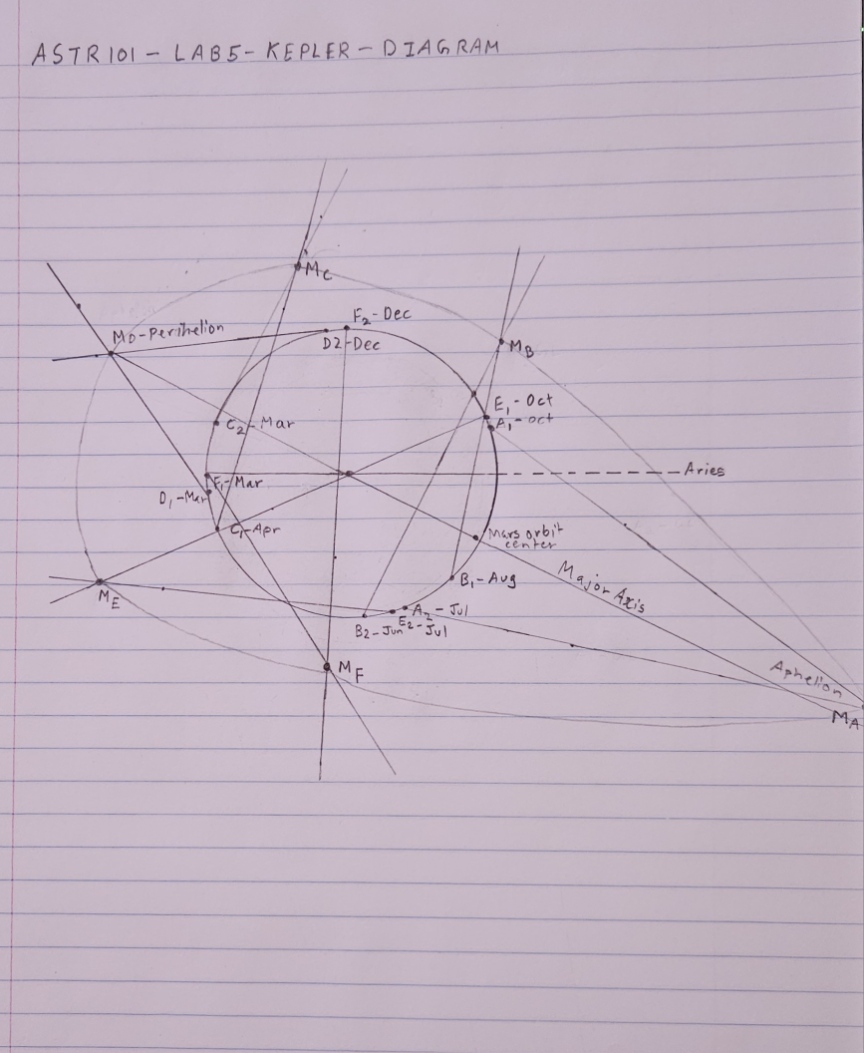 ASTR101 - LAB5 - KEPLER - DIAGRAM
MC
F2 - Dec
MD - Perihelion
D2 - Dec
MB
E1 - Oct
A1 - Oct
C2 - Mar
Aries
F1 - Mar
D1 - Mar
C1 - Apr
Mars orbit
center
Major Axis
B1 - Aug
ME
A2 - Jul
E2 - Jul
B2 - Jun
MF
Aphelion
MA